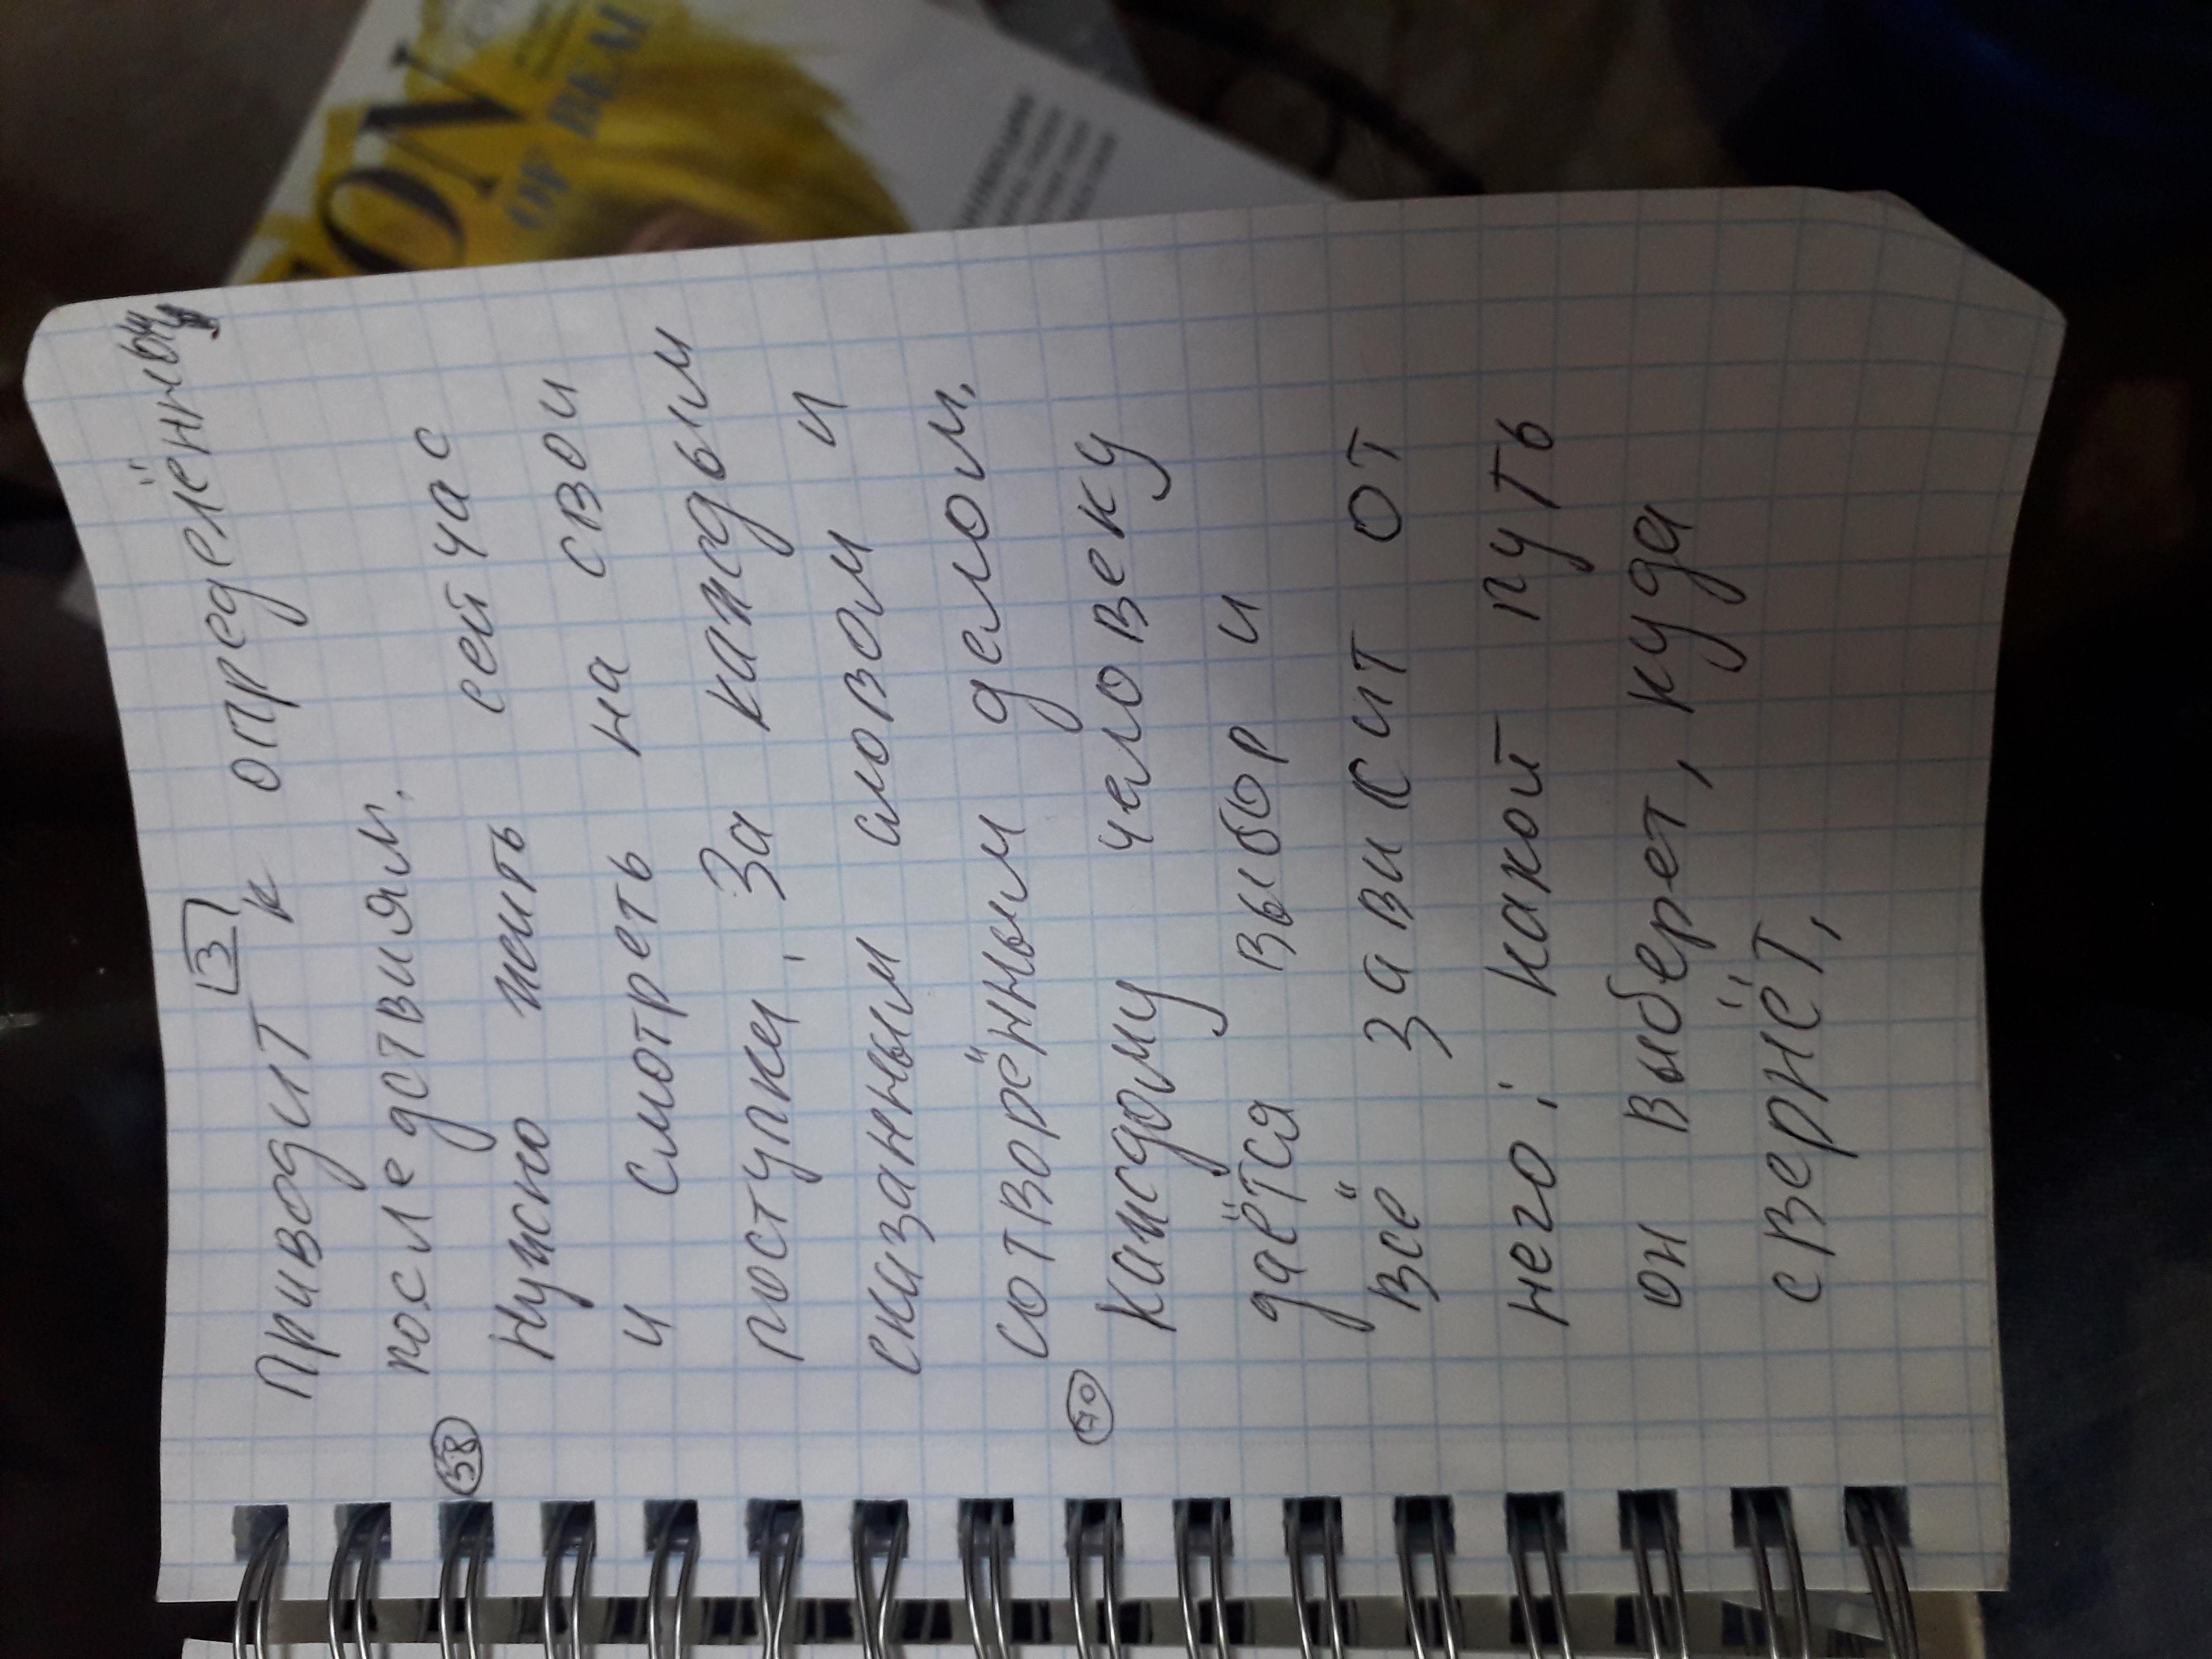 3
приводит к определённым
последствиям.
58
Нужно жить сейчас
и смотреть на свои
поступки. За каждым
сказанным словом и
сотворённым делом.
70
Каждому человеку
даётся выбор и
всё зависит от
него: какой путь
он выберет, куда
свернёт,
ON
OF BEAU